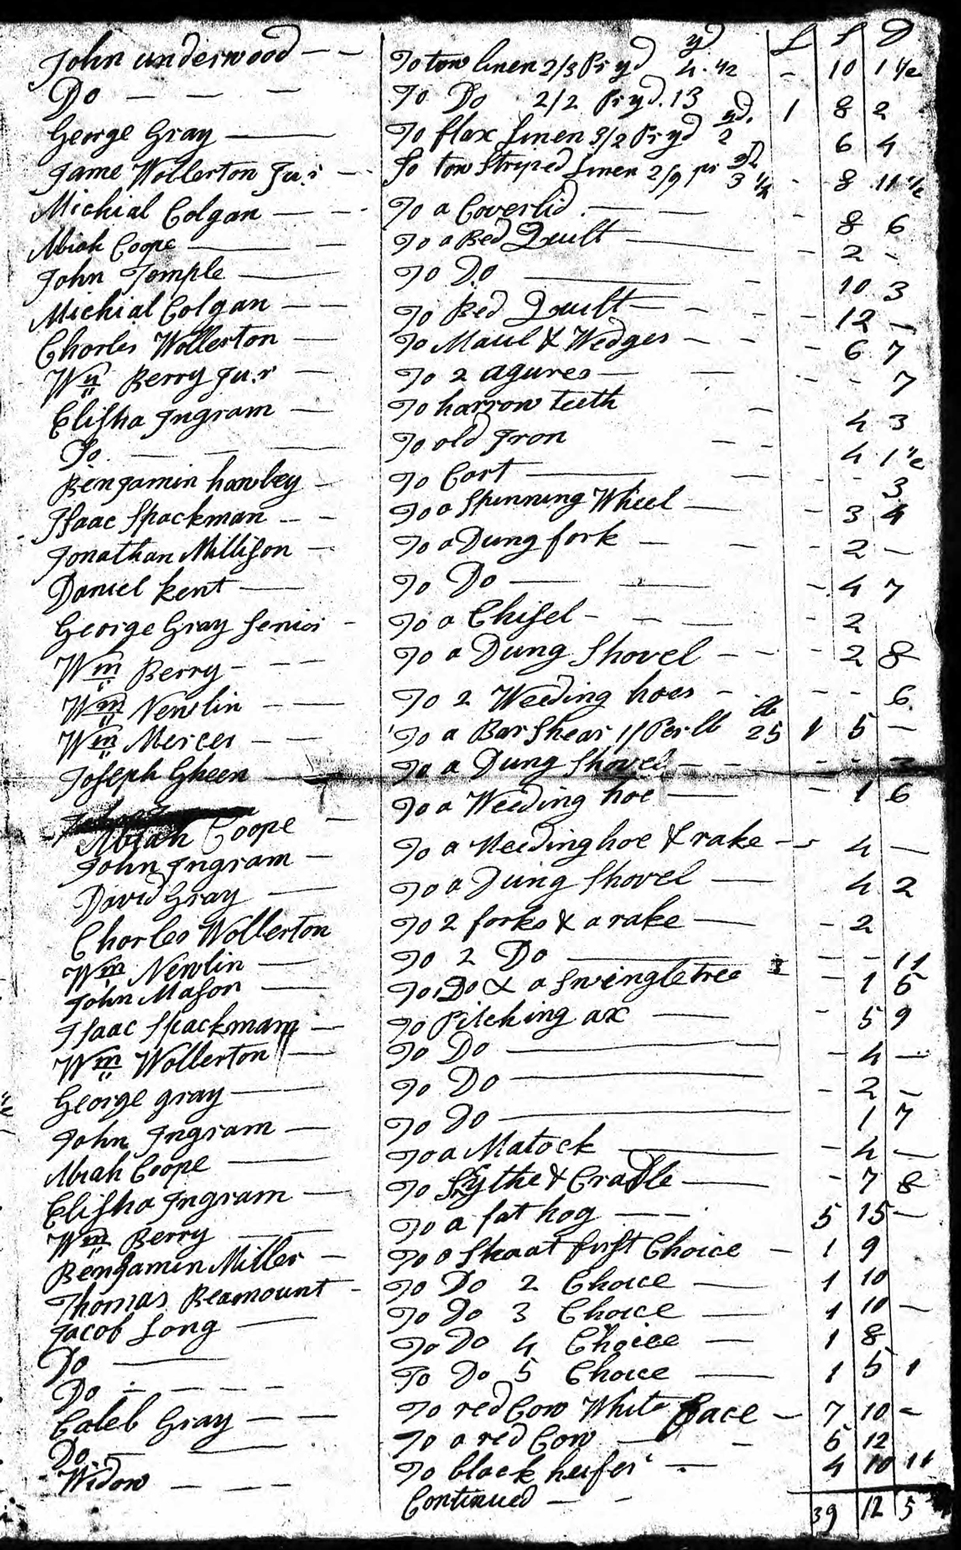 yd £ S D
John underwood — — To tow linen 2/3 Pr yd 4 1/2 - 10 1 1/2
Do — — — To Do 2/2 Pr yd. 13 1 8 2
George Gray — To flax linen 3/2 Pr yd 2 yd. 6 4
Jame Wollerton Jur — To tow Striped linen 2/9 pr yd 3 1/4 - 8 11 1/2
Michial Colgan — — - To a Coverlid — — - 8 6
Abiah Coope — — To a Bed Quilt — - 2 -
John Temple — To Do — - 10 3
Michial Colgan — To Bed Quilt — - - - 12 —
Charles Wollerton — To Maul & Wedges - - - 6 7
Wm Berry Jur — To 2 agures — — - - - 7
Elisha Ingram — To harrow teeth — 4 3
Do. — — — To old Iron — - 4 1 1/2
Benjamin hawley — To Cart — — - - 3
Isaac Spackman - - To a Spinning Wheel — - 3 4
Jonathan Millison - To a Dung fork — — - 2 —
Daniel Kent — To Do — — - 4 7
George Gray Senior - To a Chisel - - — - 2
Wm Berry - - — To a Dung Shovel - - - 2 8
Wm Newlin - — To 2 Weeding hoes - - - - 6
Wm Mercer - — To a Bar Shear 1/ Per lb 25 lb 1 5 —
Joseph Gheen — To a Dung Shovel - - - - -
Abiah Coope - To a Weeding hoe — - 1 6
John Ingram — To a Weeding hoe & rake - - 4 —
David Gray — To a Dung Shovel — 4 2
Charles Wollerton To 2 forks & a rake — - 2
Wm Newlin — To 2 Do — - - 11
John Mason — To Do & a Swingletree - 1 6
Isaac Spackman — To Pitching ax — - 5 9
Wm Wollerton — To Do — - 4 —
George gray — To Do — - 2 -
John Ingram — To Do — 1 7
Abiah Coope — To a Matock — - 4 —
Elisha Ingram — To Sythe & Cradle — - 7 8
Wm Berry — To a fat hog — — 5 15 —
Benjamin Miller - To a Shoat first Choice - 1 9
Thomas Beamount - To Do 2 Choice — 1 10
Jacob Long — To Do 3 Choice — 1 10 —
Do — To Do 4 Choice — 1 8
Do - - - - To Do 5 Choice — 1 5 1
Caleb Gray — — To red Cow White Face — 7 10 -
Do. — — To a red Cow — - 6 12
Widow — — — To black heifer - 4 10 11
Continued — - 39 12 5